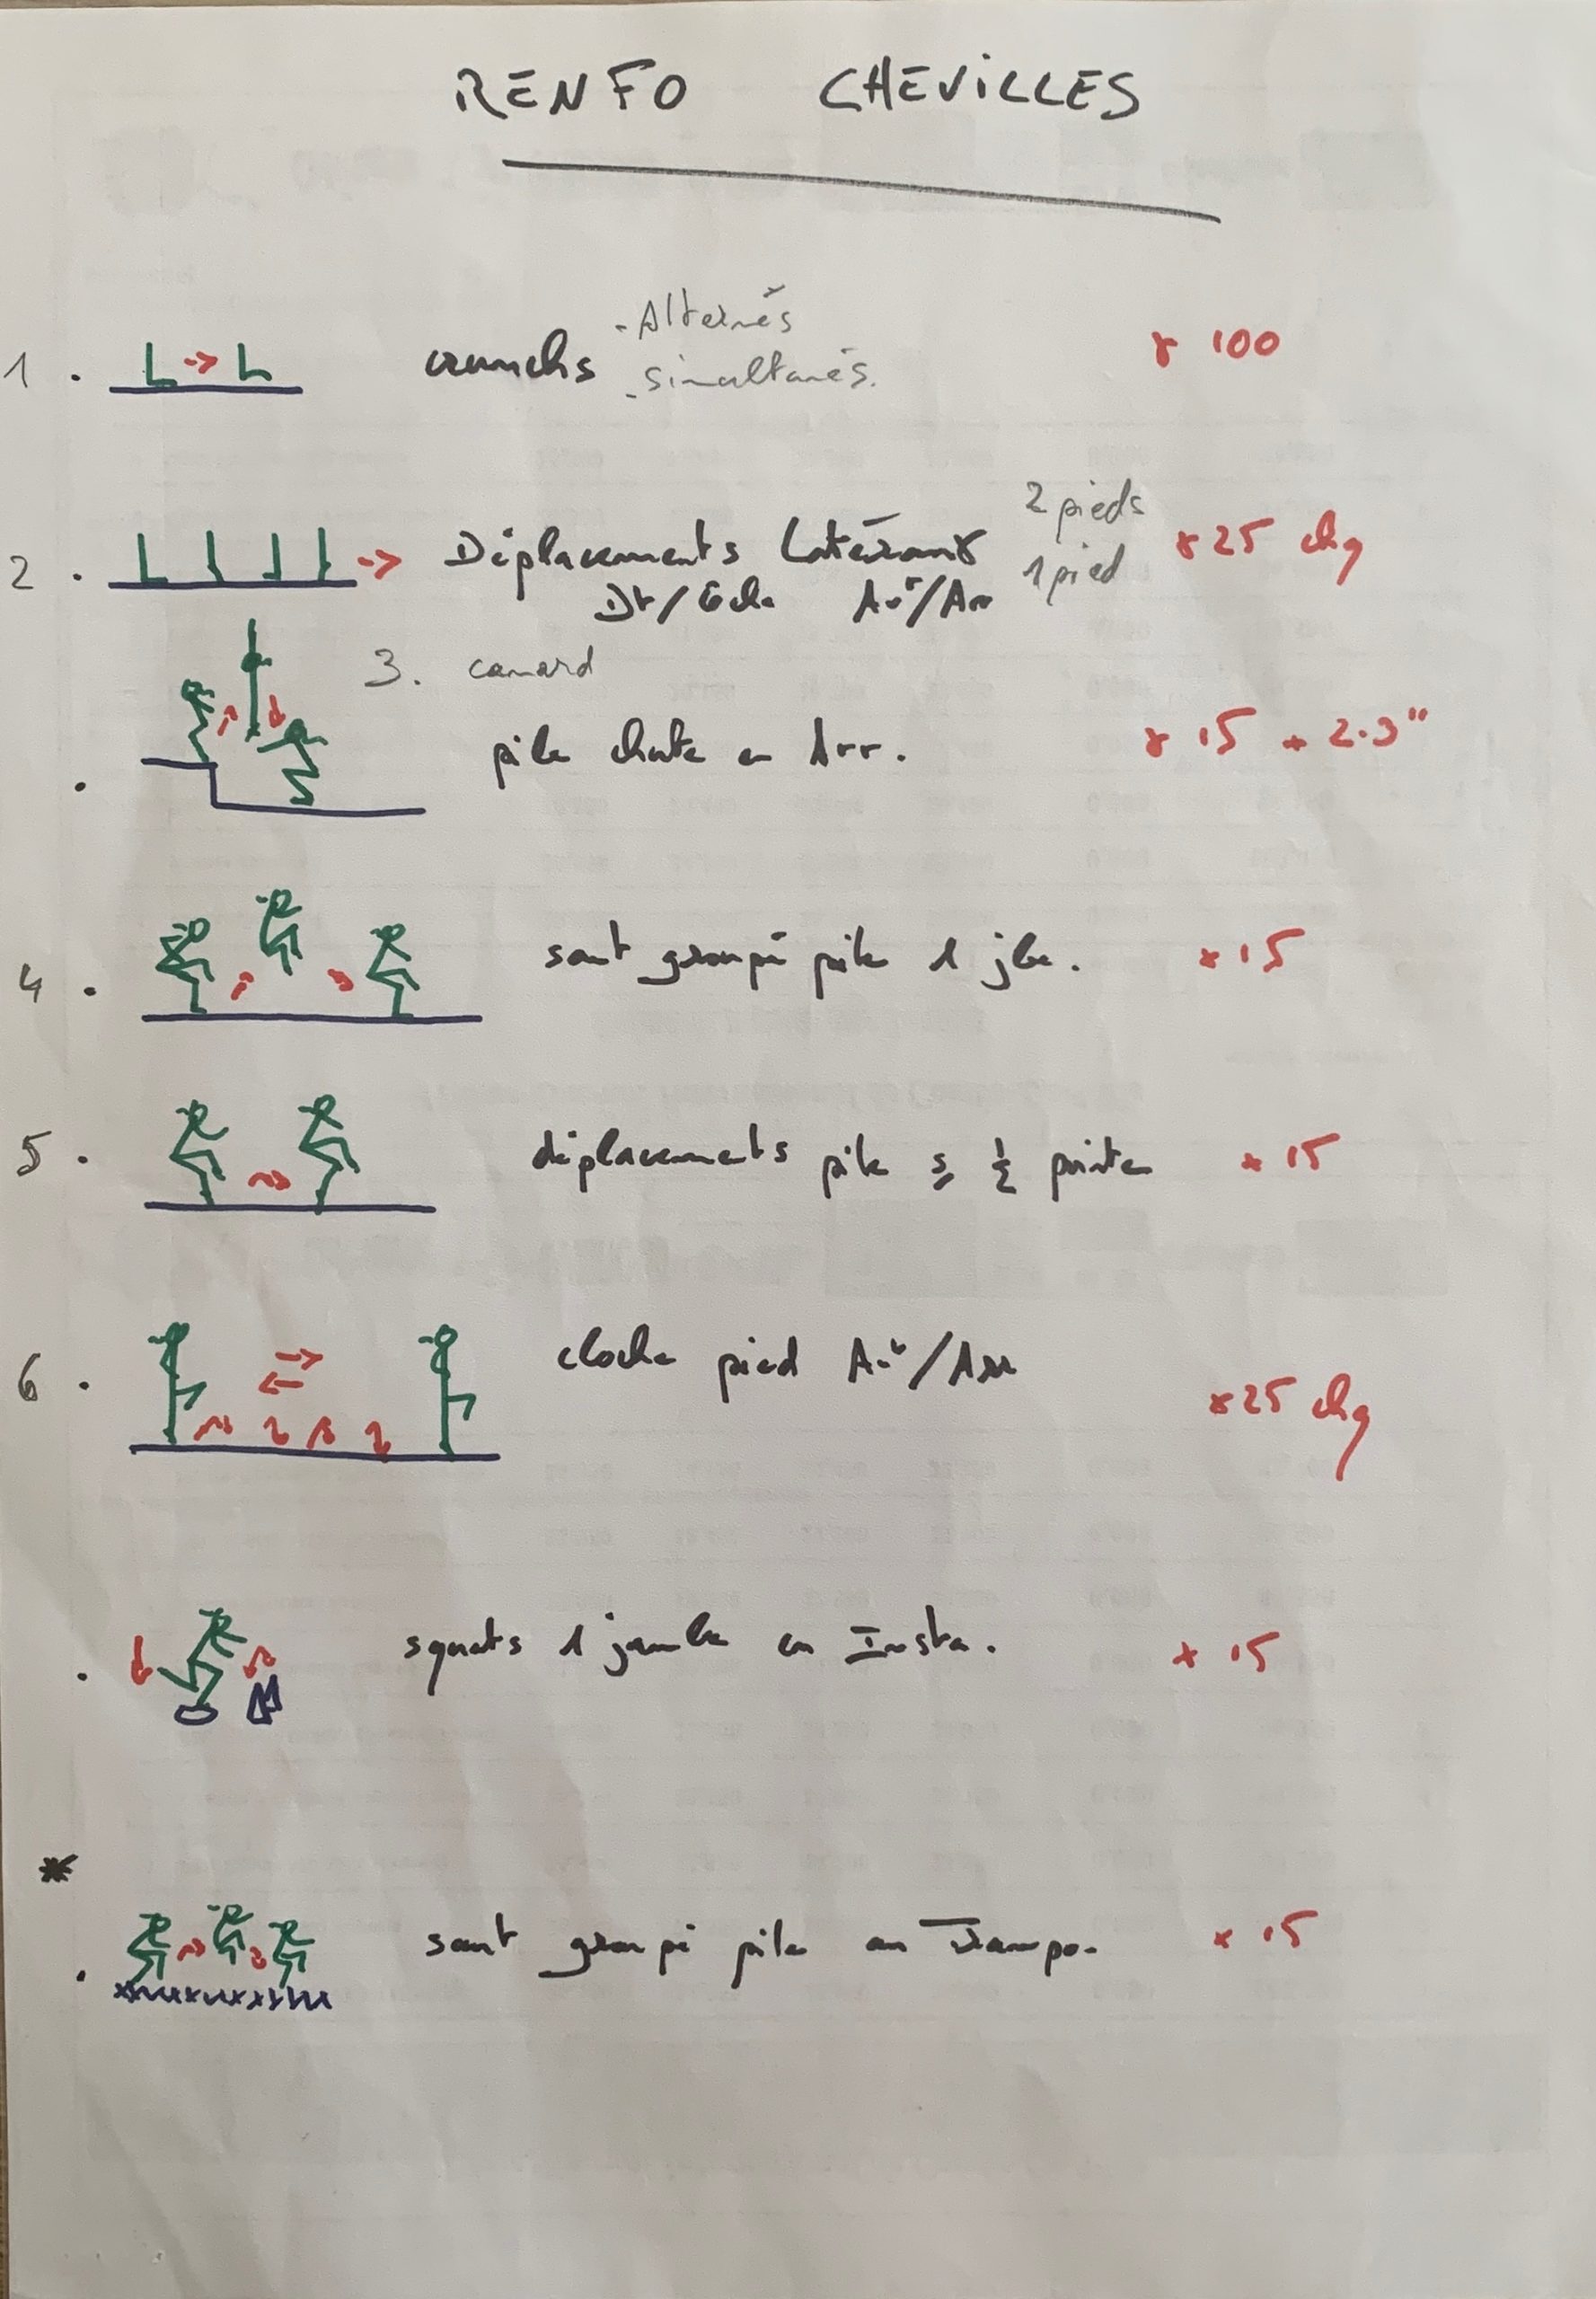 RENFO CHEVILLES
1. crunchs - Alternés x 100
- simultanés.
2. Déplacements Latéraux 2 pieds x 25 chg
Dt/Gche Avt/Arr 1 pied
3. canard
. pile chute en Arr. x 15 + 2.3"
4. saut groupé pile 1 jbe. x 15
5. déplacements pile s/ ½ pointe x 15
6. cloche pied Avt/Arr x 25 chg
. squats 1 jambe en Insta. x 15
*
. saut groupé pile au Trampo. x 15